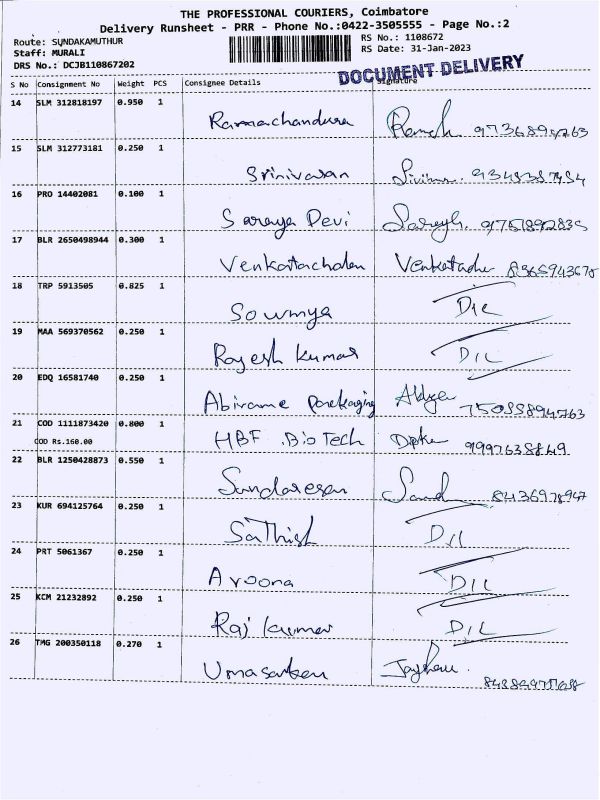 THE PROFESSIONAL COURIERS, Coimbatore
Delivery Runsheet - PRR - Phone No.:0422-3505555 - Page No.:2
Route: SUNDAKAMUTHUR
Staff: MURALI
DRS No.: DCJB110867202
RS No.: 1108672
RS Date: 31-Jan-2023
DOCUMENT DELIVERY
S No Consignment No Weight PCS Consignee Details Signature
14 SLM 312818197 0.950 1 Ramachandura Ramesh
15 SLM 312773181 0.250 1 Srinivasan
16 PRO 14402081 0.100 1 Saraya Devi 9751892835
17 BLR 2650498944 0.300 1 Venkatachalen 8365943678
18 TRP 5913505 0.825 1 Sowmya D/L
19 MAA 569370562 0.250 1 Rajesh Kumar D/L
20 EDQ 16581740 0.250 1 Abirame
21 COD 1111873420 0.800 1 HBF .BioTech
COD Rs.160.00
22 BLR 1250428873 0.550 1 Sundaresan
23 KUR 694125764 0.250 1 Sathish D/L
24 PRT 5061367 0.250 1 Aroona D/L
25 KCM 21232892 0.250 1 Raj kumar D/L
26 TMG 200350118 0.270 1